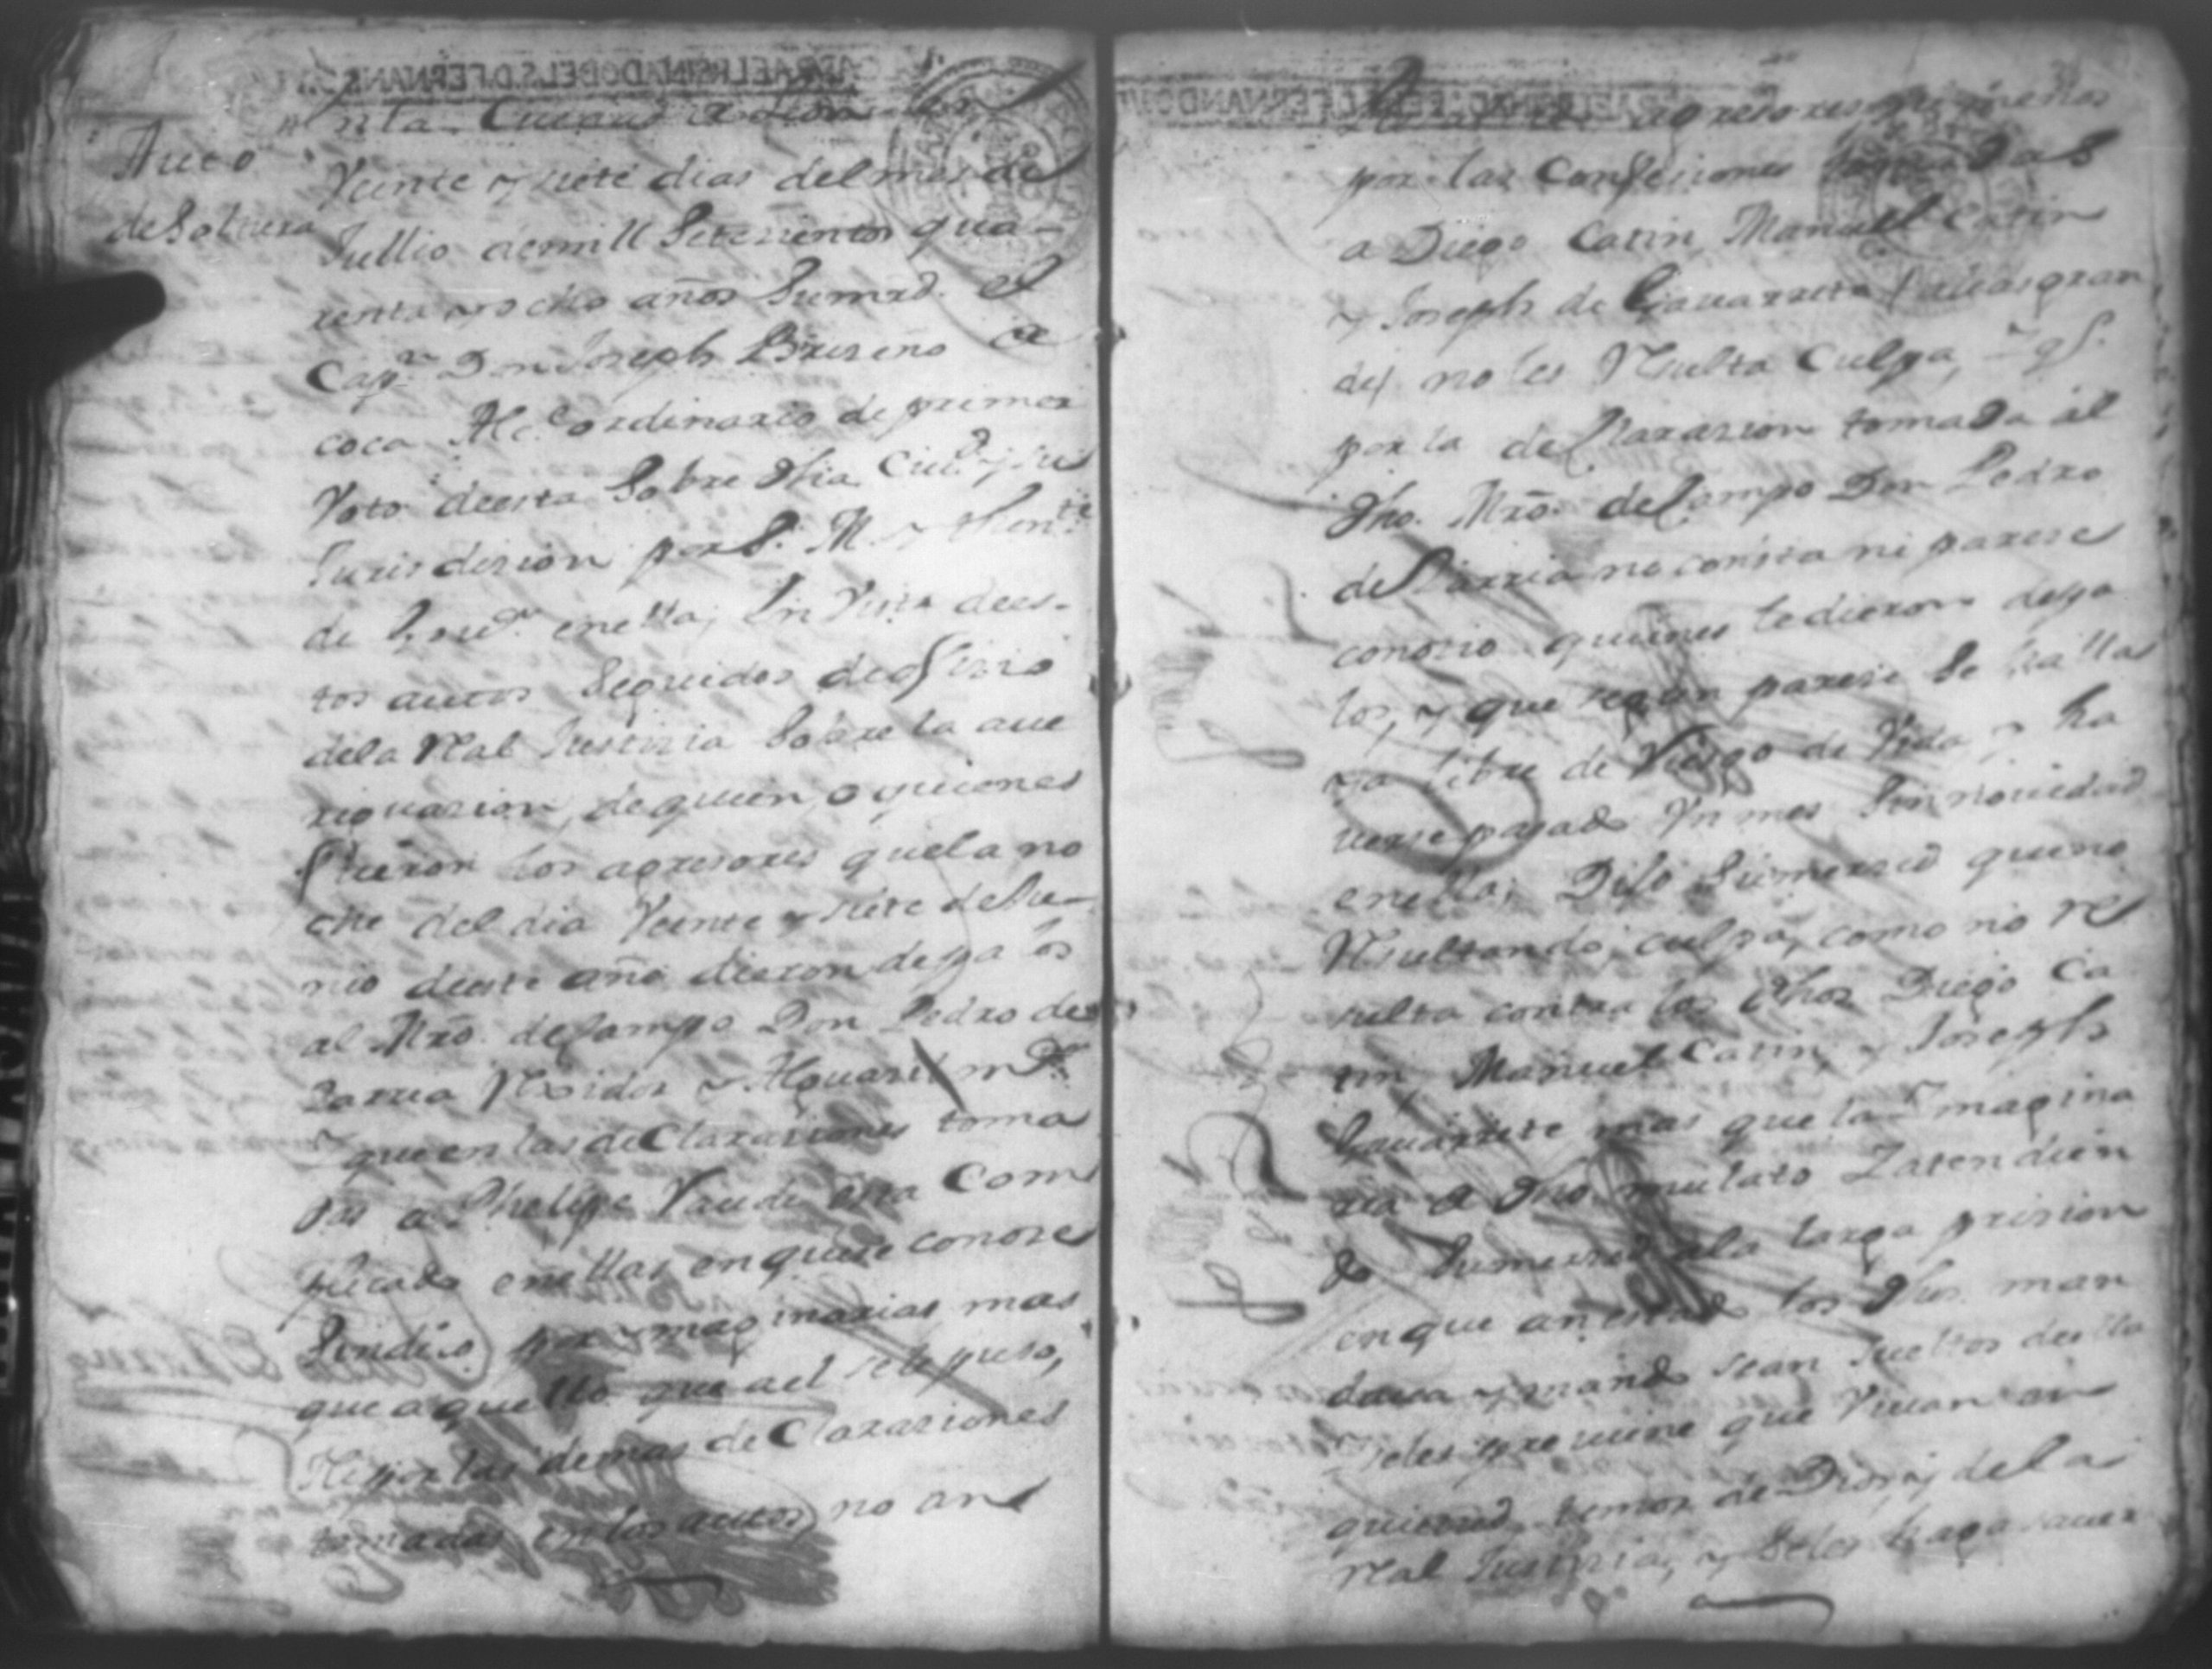 Auto
de Soltura
En la Ciudad de Leon a los
Veinte y siete dias del mes de
Jullio de mill Setezientos qua-
renta y ocho años Su mrd. el
Capn. Don Joseph Briseño de
coca Alce. ordinario de primer
Voto de esta Sobre dha Ciud. y su
Jurisdision por S. M. y thente.
de Govr. en ella, En Vista de es-
tos autos Seguidos de ofisio
de la Real Justizia Sobre la ave
riguasion, de quien, o quienes
fueron los agresores que la no
che del dia Veinte y siete de Ju-
nio de este año dieron de pa los
al Mro. de Campo Don Pedro de
Sarria Rexidor y Alguasil mr.
Y que en las de Clarasiones toma
das a Phelipe Vaudi esta Com
plicado en ellas en que se conose
Yndisio por ymaginarias mas
que aquello que a el se le puso,
Ni por las demas de Clarasiones
tomadas en los autos, no an
agresores, ni menos
por las Confesiones tomadas
a Diego Catin, Manuel Catin
y Joseph de Gavarrete
no les Resulta Culpa, Y qe.
por la de Clarasion tomada al
dho. Mro. de Campo Don Pedro
de Sarria no consta ni parese
conosio quienes le dieron de pa
los, y que segun parese Se halla
ya libre de Riesgo de Vida y ha
verse pasado Un mes Sin novedad
en ella; Dijo Su merced que no
Resultando, culpa, como no re
sulta contra los dhos Diego Ca
tin, Manuel Catin, y Joseph
Gavarrete mas que la Ymagina
ria de dho mulato Y atendien
do Su merced a la larga prision
en que an estado los dhos. man
dava y mando sean sueltos de ella
Y se les previene que Vivan con
quietud, temor de Dios, y de la
Real Justizia, y Se les haga saver